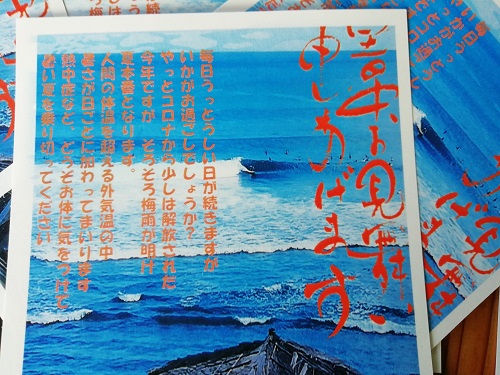 暑中お見舞い
申しあげます
毎日うっとうしい日が続きますが
いかがお過ごしでしょうか？
やっとコロナから少しは解放された
今年ですが　そろそろ梅雨が明け
夏本番となります。
人間の体温を超える外気温の中
暑さが日ごとに加わってまいります
熱中症など、どうぞお体に気をつけて、
暑い夏を乗り切ってください